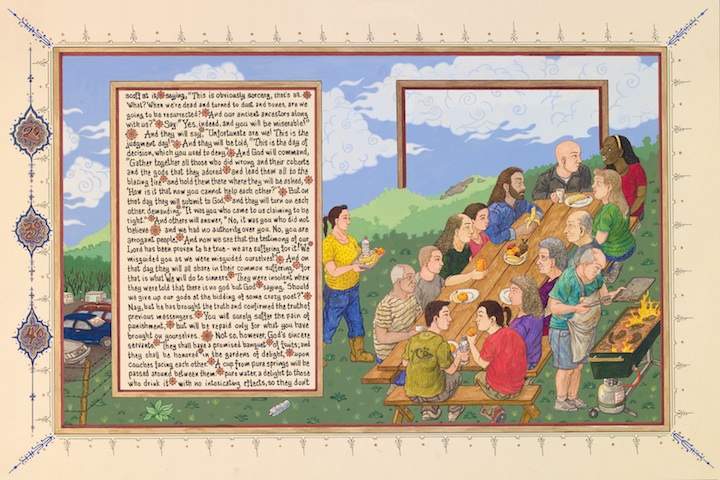 scoff at it, saying, "This is obviously sorcery, that's all.
What? When we're dead and turned to dust and bones, are we
going to be resurrected? And our ancient ancestors along
with us?" Say "Yes, indeed, and you will be miserable!"
And they will say, "Unfortunate are we! This is the
judgment day!" And they will be told, "This is the day of
decision, which you used to deny. And God will command,
"Gather together all those who did wrong and their cohorts
and the gods that they adored and lead them all to the
blazing fire and hold them there where they will be asked,
"How is it that now you cannot help each other?" But on
that day they will submit to God, and they will turn on each
other, demanding, "It was you who came to us claiming to be
right." And others will answer, "No, it was you who did not
believe and we had no authority over you. No, you are
arrogant people. And now we see that the testimony of our
Lord has been proven to be true - we are suffering for it! We
misguided you as we were misguided ourselves! And on
that day they will all share in their common suffering, for
that is what We will do to sinners. They were insolent when
they were told that there is no god but God saying, "Should
we give up our gods at the bidding of some crazy poet?"
Nay, but he has brought the truth and confirmed the truth of
previous messengers. You will surely suffer the pain of
punishment, but will be repaid only for what you have
brought on yourselves. Not so, however, God's sincere
servants. They shall have a promised banquet of fruits; and
they shall be honored in the gardens of delight, upon
couches facing each other. A cup from pure springs will be
passed around between them pure water, a delight to those
who drink it with no intoxicating effects, so they don't